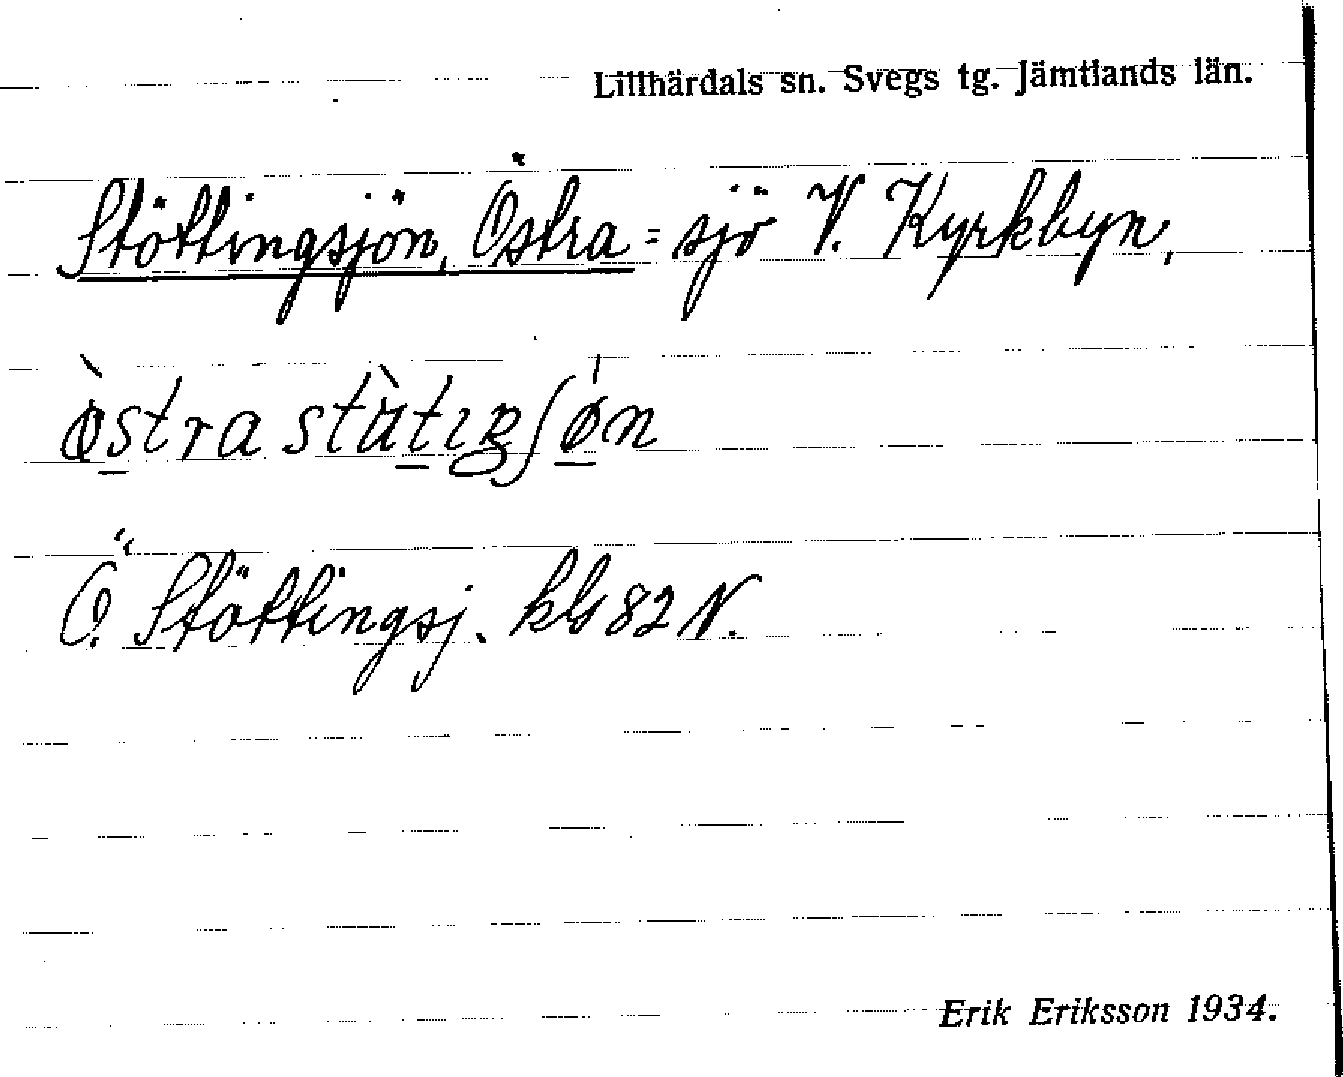 Lillhärdals sn. Svegs tg. Jämtlands län.
Stöttingsjön, Östra = sjö V. Kyrkbyn,
Ö. Stöttingsj. kbl 82 N.
Erik Eriksson 1934.